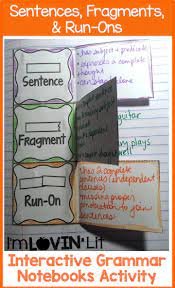 Sentences, Fragments,
& Run-Ons
has subject + predicate
expresses a complete
thought
can stand alone
Sentence
guitar
Fragment
plays
well
has 2 complete
(independent
clauses)
missing proper
punctuation to join
sentences
Run-On
I'm LOVIN' Lit
Interactive Grammar
Notebooks Activity